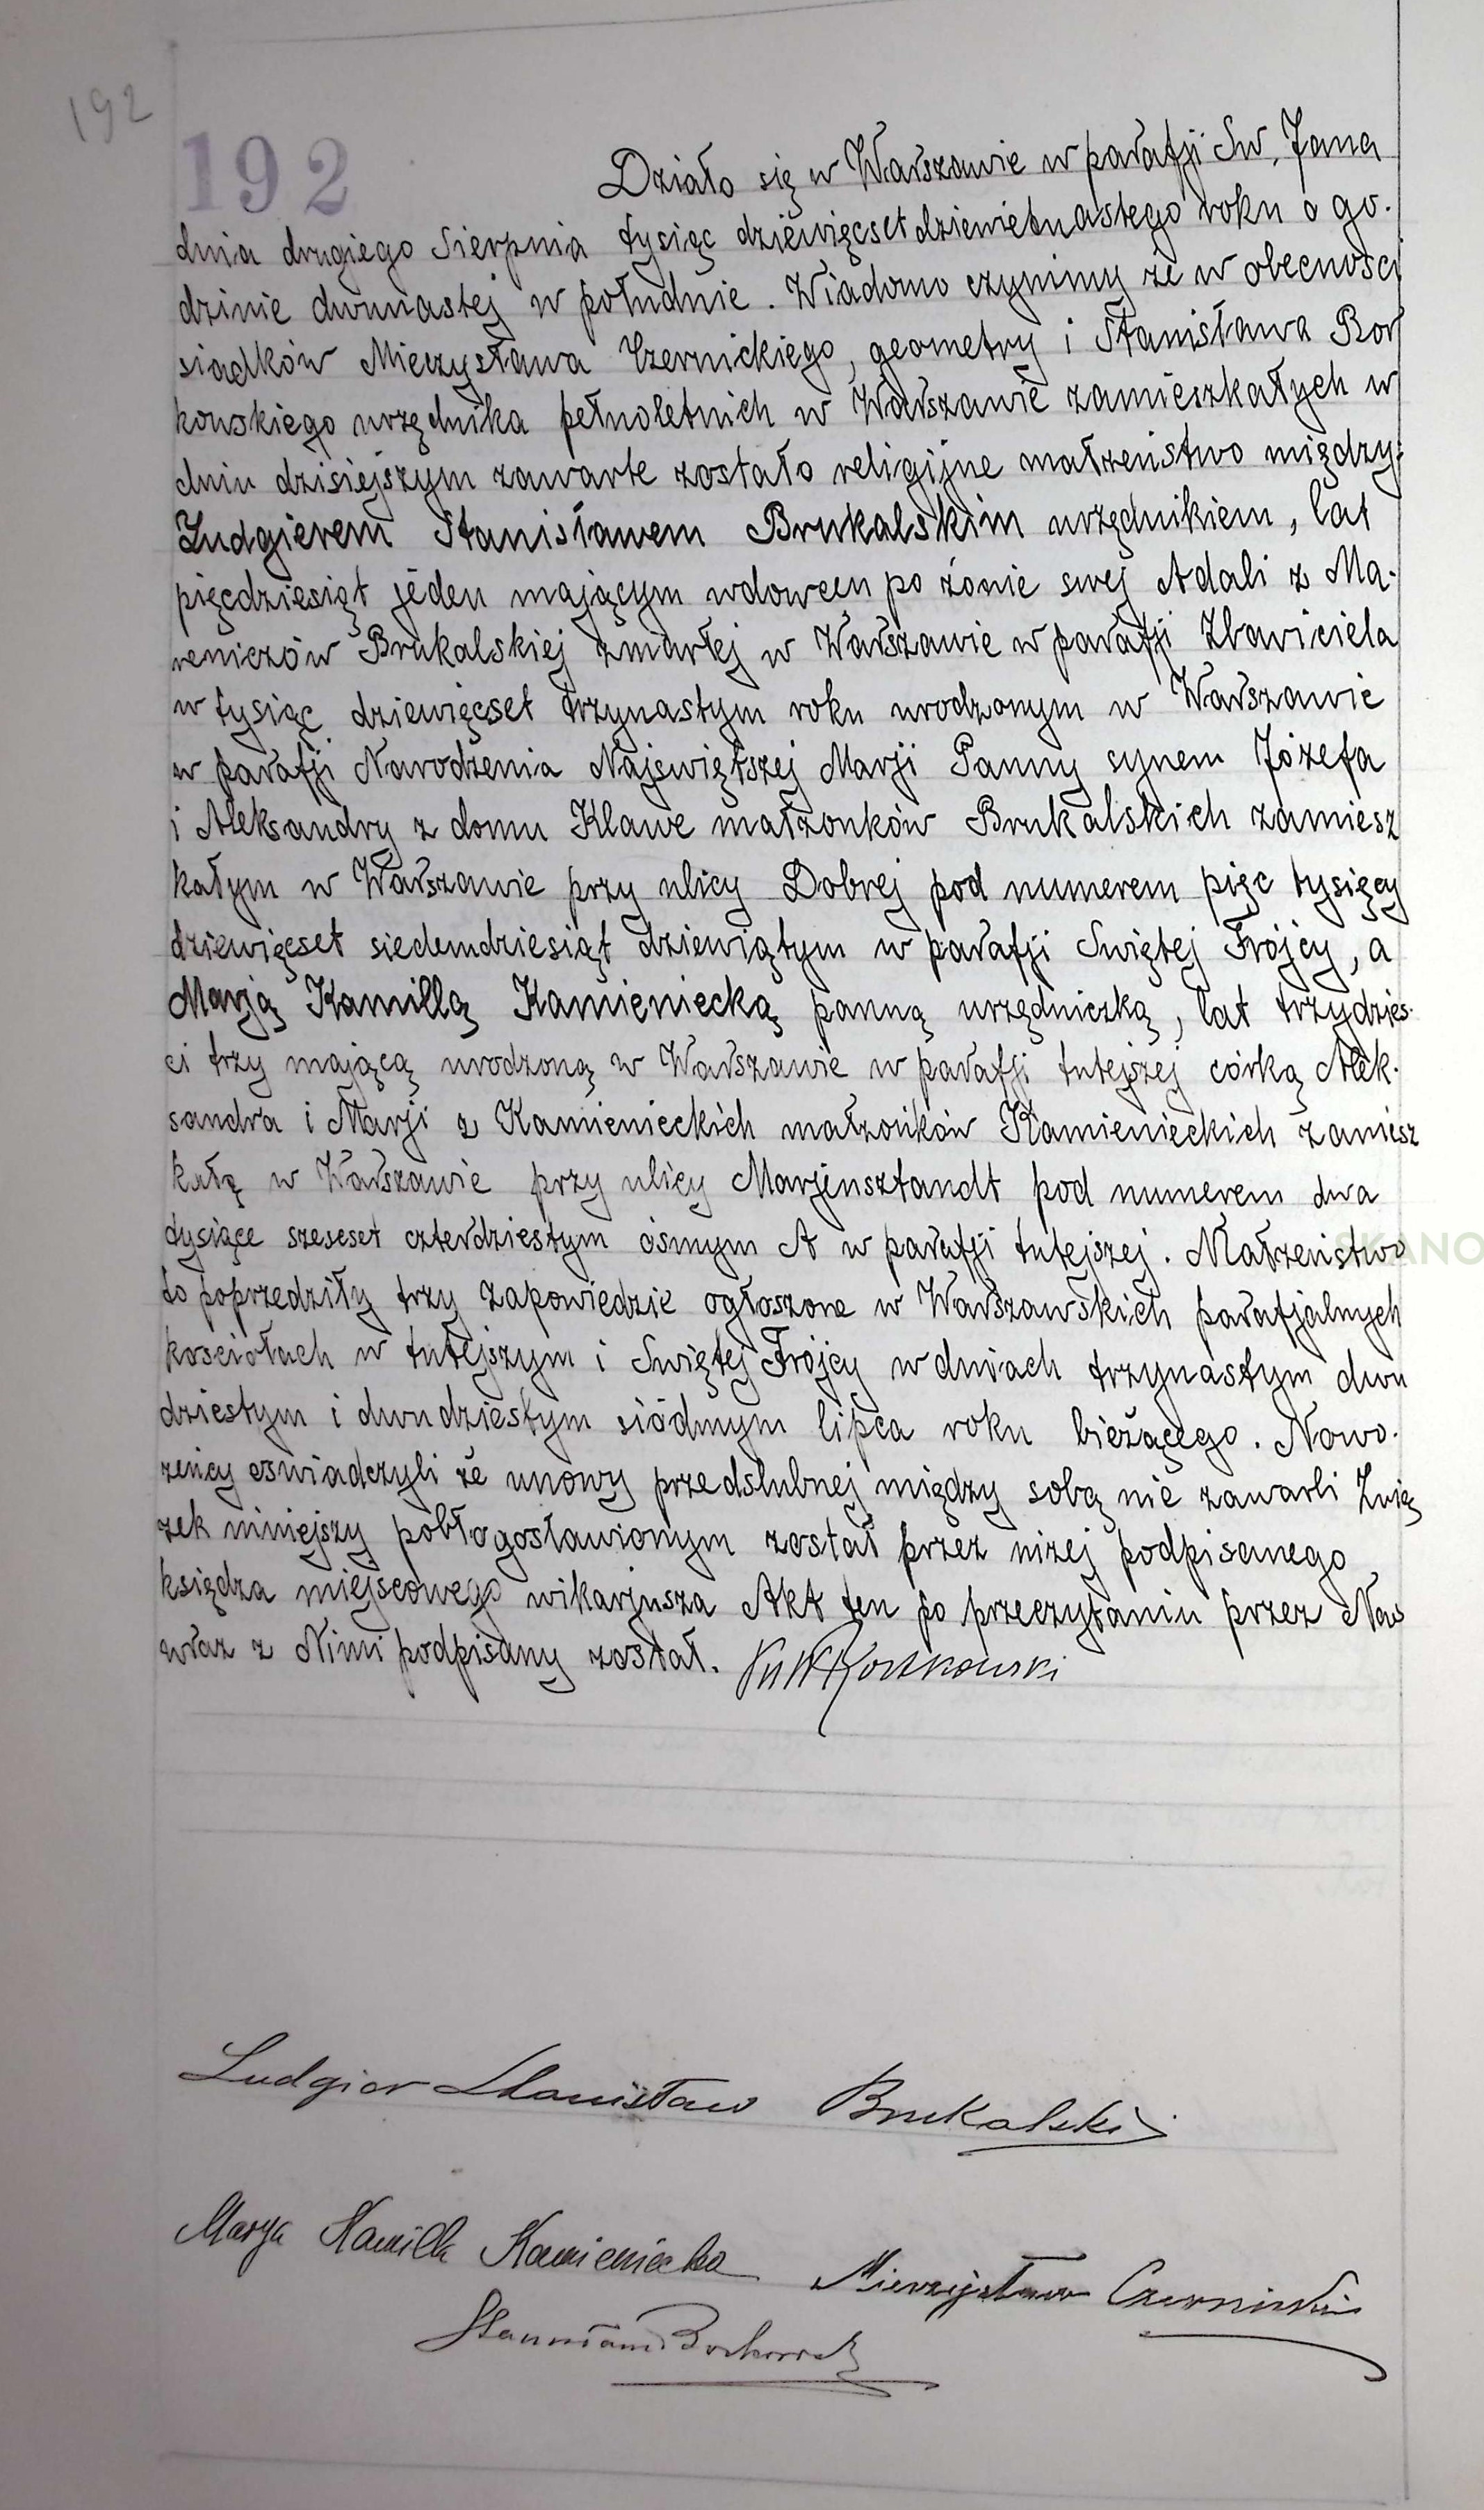 192
192
Działo się w Warszawie w parafji Sw. Jana
dnia drugiego Sierpnia tysiąc dziewięcset dziewietnastego roku o go-
dzinie dwunastej w południe. Wiadomo czynimy że w obecności
siadków Mieczysława Czernickiego, geometry i Stanisława Bor
kowskiego urzędnika pełnoletnich w Warszawie zamieszkałych w
dniu dzisiejszym zawarte zostało religijne małżeństwo między:
Ludgierem Stanisławem Brukalskim urzędnikiem, lat
pięcdziesiąt jeden mającym wdowcem po żonie swej Adali z Ma-
reniczów Brukalskiej zmarłej w Warszawie w parafji Zbawiciela
w tysiąc dziewięcset trzynastym roku urodzonym w Warszawie
w parafji Narodzenia Najświętszej Marji Panny synem Józefa
i Aleksandry z domu Klawe małzonków Brukalskich zamiesz
kałym w Warszawie przy ulicy Dobrej pod numerem pięc tysięcy
dziewięcset siedemdziesiąt dziewiątym w parafji Swiętej Trójcy, a
Marją Kamillą Kamieniecką panną urzędniczką, lat trzydzies-
ci trzy mającą urodzoną w Warszawie w parafji tutejszej córką Alek-
sandra i Marji z Kamienieckich małzonków Kamienieckich zamiesz
kałą w Warszawie przy ulicy Marjensztandt pod numerem dwa
tysiące szescset czterdziestym ósmym A w parafji tutejszej. Małżeństwo
to poprzedziły trzy zapowiedzie ogłoszone w Warszawskich parafjalnych
kosciołach w tutejszym i Swiętej Trójcy w dniach trzynastym dwu
dziestym i dwudziestym siódmym lipca roku bieżącego. Nowo-
żeńcy oswiadczyli że umowy przedslubnej między sobą nie zawarli Zwią
zek niniejszy pobłogosławionym został przez niżej podpisanego
księdza miejscowego wikarjusza Akt ten po przeczytaniu przez Nas
wraz z Nimi podpisany został.
Ludgier Stanisław Brukalski
Marya Kamilla Kamieniecka Mieczysław Czernicki
Stanisław Borkowski